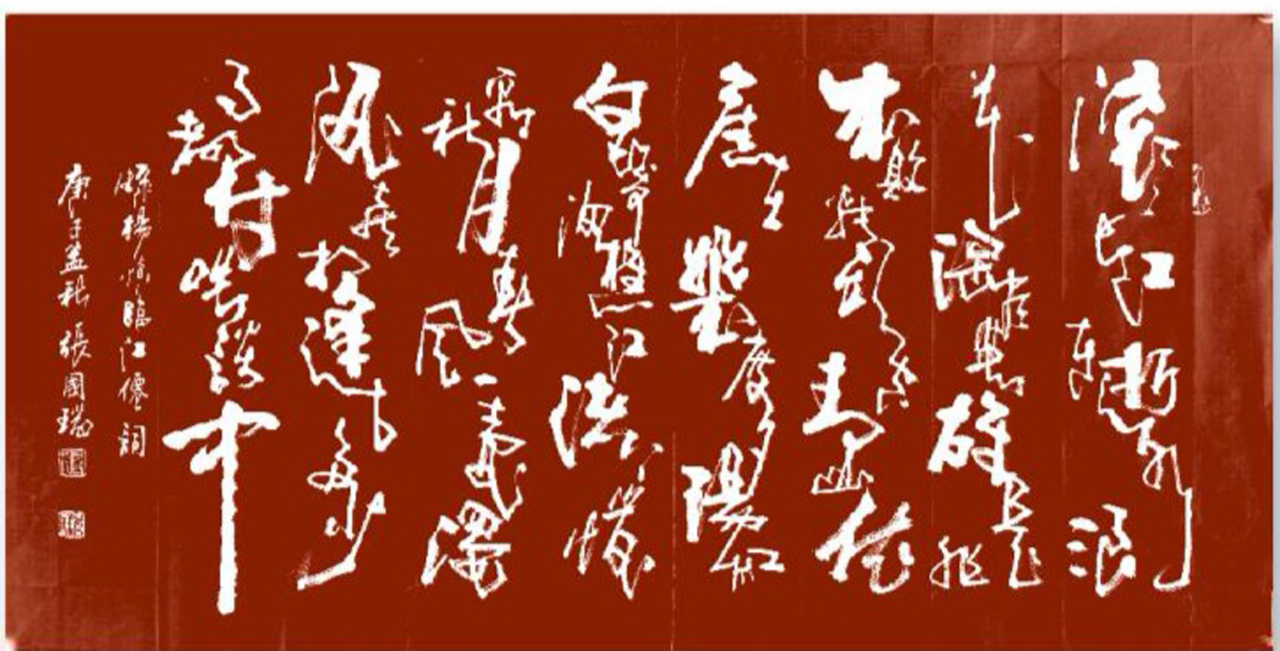 滚滚长江东逝水浪
花淘尽英雄是非
成败转头空青山依
旧在几度夕陽红
白髮渔樵江渚上惯
看秋月春风一壶濁
酒喜相逢古今多少
事都付笑谈中
楊慎臨江僊詞
庚子孟秋張國瑞